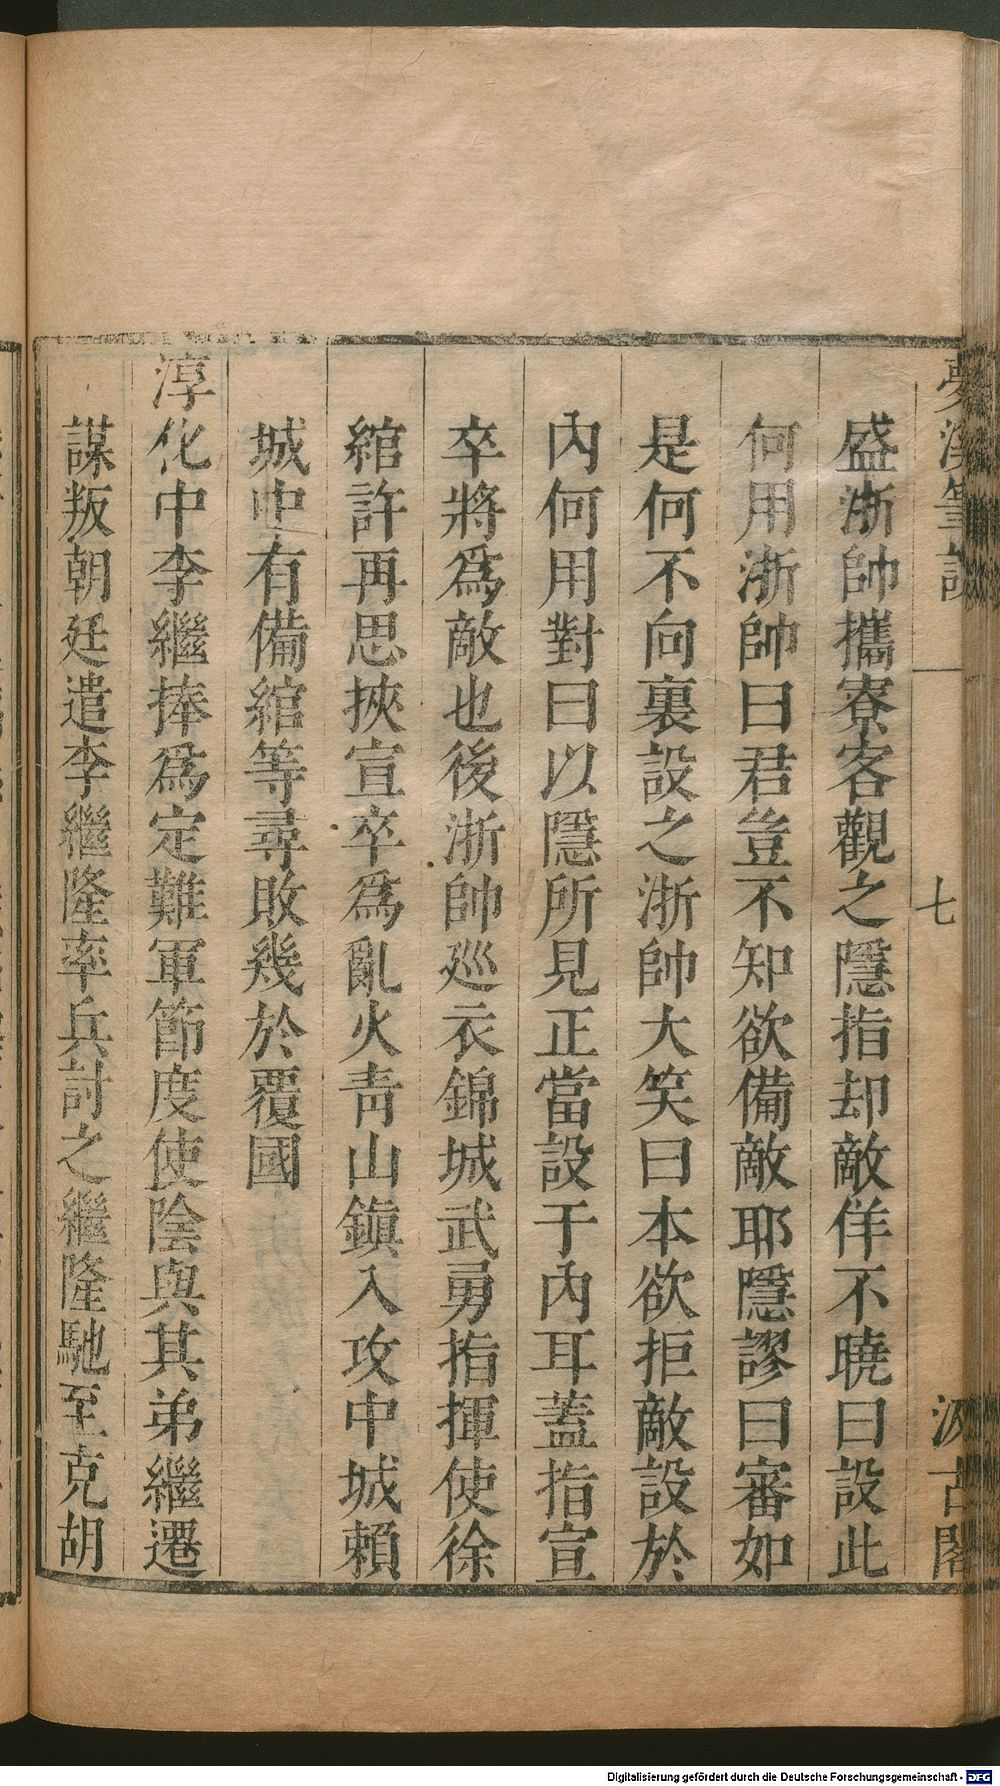 夢溪筆談 七 汲古閣
盛浙帥攜寮客觀之隱指却敵佯不曉曰設此
何用浙帥曰君豈不知欲備敵耶隱謬曰審如
是何不向裏設之浙帥大笑曰本欲拒敵設於
內何用對曰以隱所見正當設于內耳蓋指宣
卒將爲敵也後浙帥巡衣錦城武勇指揮使徐
綰許再思挾宣卒爲亂火青山鎮入攻中城賴
城中有備綰等尋敗幾於覆國
淳化中李繼捧爲定難軍節度使陰與其弟繼遷
謀叛朝廷遣李繼隆率兵討之繼隆馳至克胡
Digitalisierung gefördert durch die Deutsche Forschungsgemeinschaft - DFG